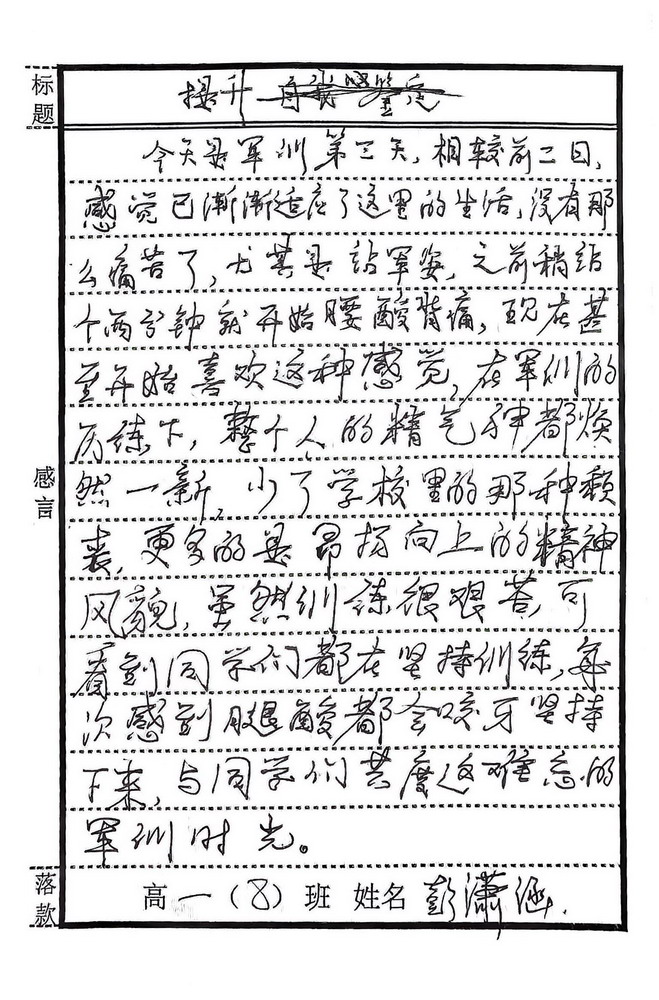 标题
提升
今天是军训第三天,相较前二日,
感觉已渐渐适应了这里的生活,没有那
么痛苦了,尤其是站军姿,之前稍站
个两分钟就开始腰酸背痛,现在甚
至开始喜欢这种感觉,在军训的
历练下,整个人的精气神都焕
然一新,少了学校里的那种颓
丧,更多的是昂扬向上的精神
感言
风貌,虽然训练很艰苦,可
看到同学们都在坚持训练,每
次感到腿酸都会咬牙坚持
下来,与同学们共度这难忘的
军训时光。
落款
高一(8)班 姓名 彭潇涵.